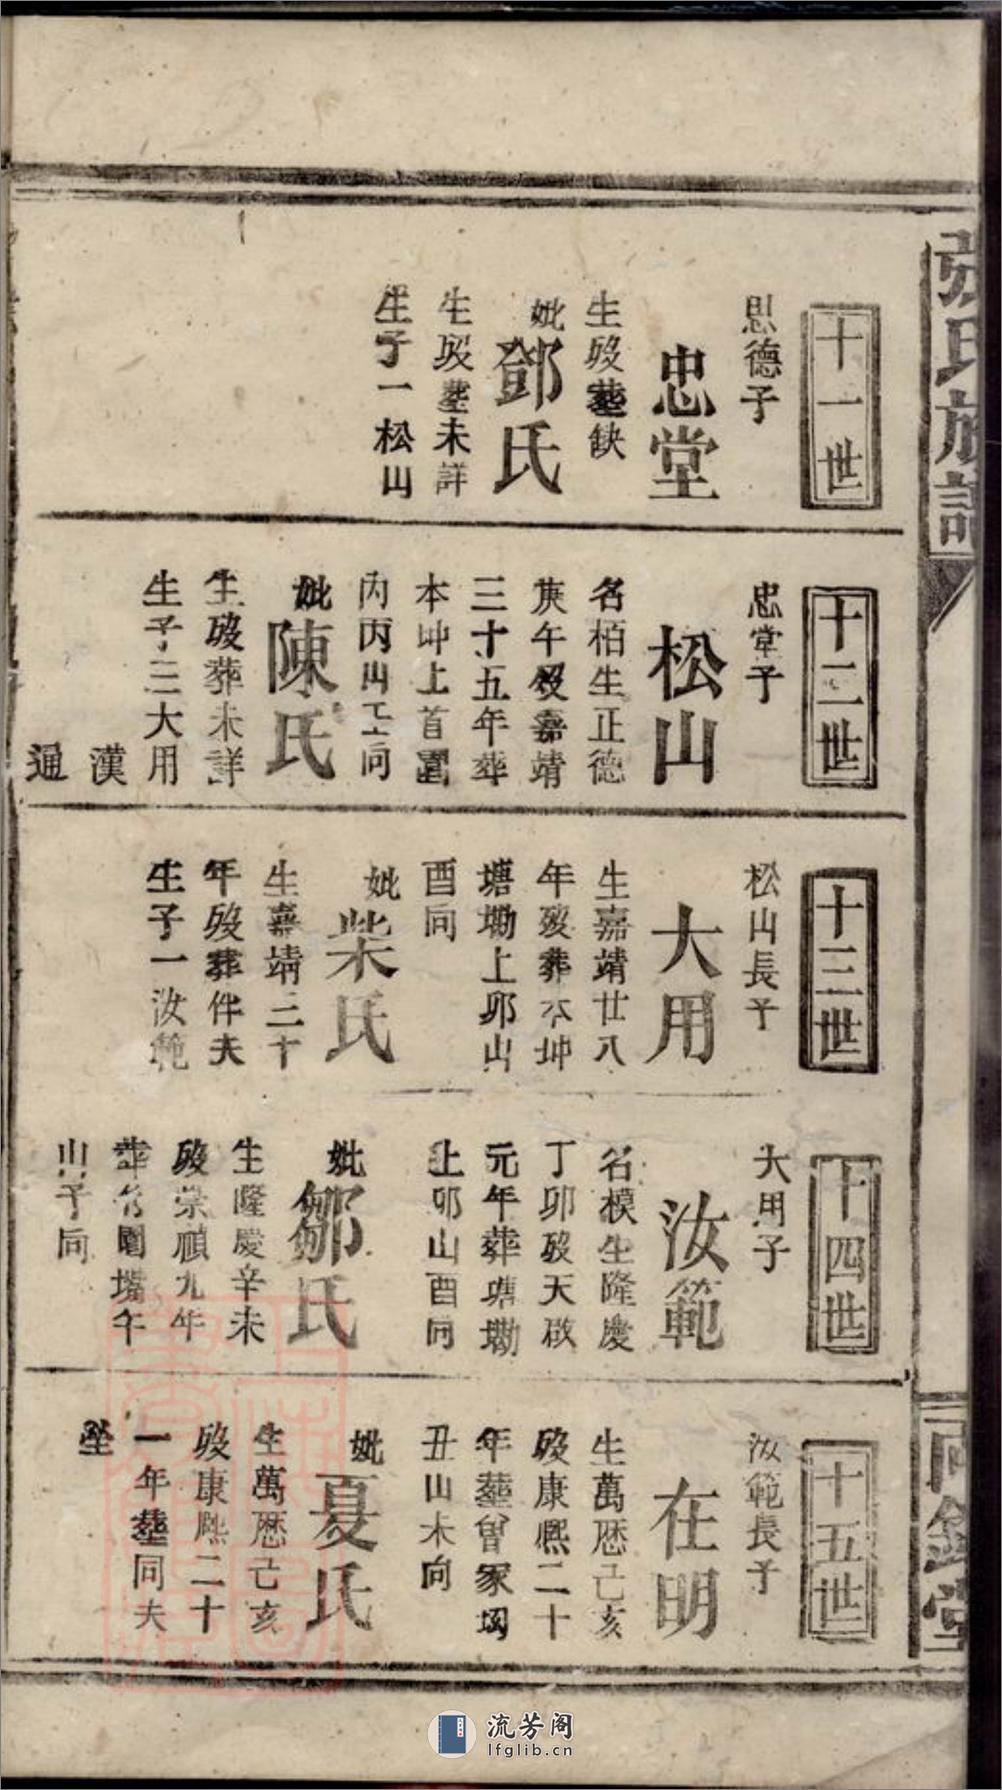 張氏族譜
十一世
思德子
忠堂
生歿塟缺
妣鄧氏
生歿塟未詳
生子一松山
十二世
忠堂子
松山
名栢生正德
庚午歿嘉靖
三十五年葬
本坤上首園
內丙山壬向
妣陳氏
生歿葬未詳
生子三大用
漢
通
十三世
松山長子
大用
生嘉靖廿八
年歿葬本坤
塘墈上卯山
酉向
妣柴氏
生嘉靖三十
年歿葬伴夫
生子一汝範
十四世
大用子
汝範
名模生隆慶
丁卯歿天啟
元年葬塘墈
上卯山酉向
妣鄒氏
生隆慶辛未
歿崇禎九年
葬 園塆午
山子向
十五世
汝範長子
在明
生萬歷己亥
歿康熙二十
年塟曾家坳
丑山未向
妣夏氏
生萬歷己亥
歿康熙二十
一年塟同夫
塋
百鈴堂
流芳阁
lfglib.cn